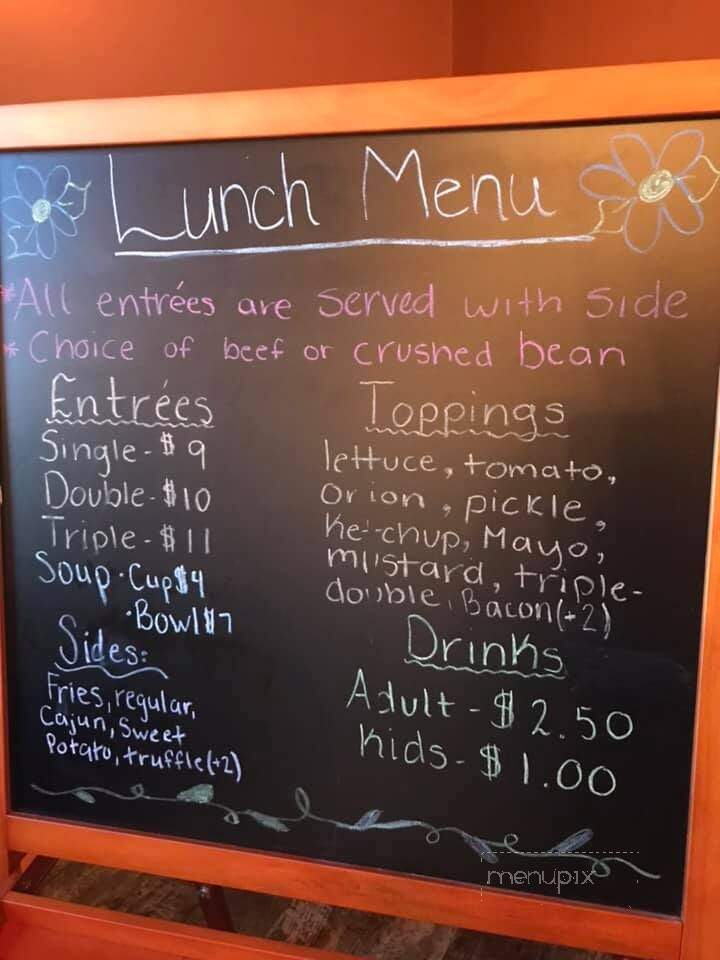 Lunch Menu
*All entrées are served with side
* Choice of beef or crushed bean
Entrées
Single - $9
Double - $10
Triple - $11
Soup · Cup $4
· Bowl $7
Sides:
Fries, regular,
Cajun, Sweet
Potato, truffle (+2)
Toppings
lettuce, tomato,
onion, pickle,
ketchup, Mayo,
mustard, triple-
double, Bacon (+2)
Drinks
Adult - $2.50
Kids - $1.00
menupix